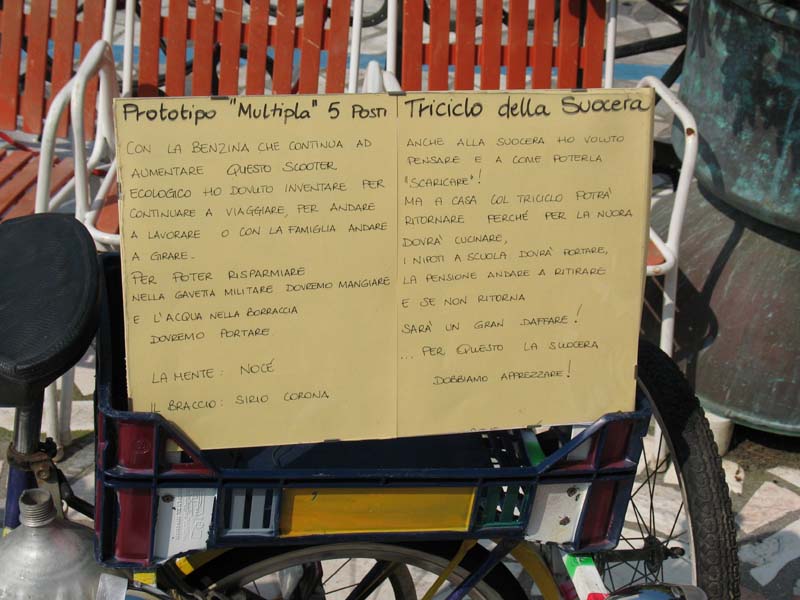 Prototipo "Multipla" 5 Posti
CON LA BENZINA CHE CONTINUA AD
AUMENTARE QUESTO SCOOTER
ECOLOGICO HO DOVUTO INVENTARE PER
CONTINUARE A VIAGGIARE, PER ANDARE
A LAVORARE O CON LA FAMIGLIA ANDARE
A GIRARE.
PER POTER RISPARMIARE
NELLA GAVETTA MILITARE DOVREMO MANGIARE
E L'ACQUA NELLA BORRACCIA
DOVREMO PORTARE.
LA MENTE: NOCÉ
IL BRACCIO: SIRIO CORONA
Triciclo della Suocera
ANCHE ALLA SUOCERA HO VOLUTO
PENSARE E A COME POTERLA
"SCARICARE"!
MA A CASA COL TRICICLO POTRA'
RITORNARE PERCHÉ PER LA NUORA
DOVRA' CUCINARE,
I NIPOTI A SCUOLA DOVRA' PORTARE,
LA PENSIONE ANDARE A RITIRARE
E SE NON RITORNA
SARA' UN GRAN DAFFARE!
... PER QUESTO LA SUOCERA
DOBBIAMO APPREZZARE!